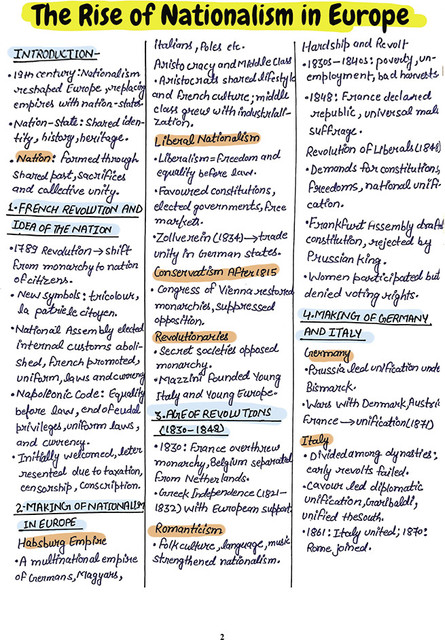 The Rise of Nationalism in Europe
INTRODUCTION-
• 19th century: Nationalism
reshaped Europe, replacing
empires with nation-states
• Nation-State: Shared iden-
tity, history, heritage.
• Nation: Formed through
shared past, sacrifices
and collective unity.
1. FRENCH REVOLUTION AND
IDEA OF THE NATION
• 1789 Revolution → shift
from monarchy to nation
of citizens.
• New symbols: tricolour,
la patrie le citoyen.
• National Assembly elected
internal customs aboli-
shed, French promoted,
uniform, laws and currency
• Napoleonic Code: Equality
before law, end of feudal
privileges, uniform laws,
and currency.
• Initially welcomed, leter
resented due to taxation,
censorship, conscription.
2. MAKING OF NATIONALISM
IN EUROPE
Habsburg Empire
• A multinational empire
of Germans, Magyars,
Italians, Poles etc.
Aristocracy and Middle Class
• Aristocrats shared lifestyle
and French culture; middle
class grew with industriali-
zation.
Liberal Nationalism
• Liberalism = Freedom and
equality before law.
• Favoured constitutions,
elected governments, free
markets.
• Zollverein (1834) → trade
unity in German states.
Conservatism After 1815
• Congress of Vienna restored
monarchies, suppressed
opposition.
Revolutionaries
• Secret societies opposed
monarchy.
• Mazzini founded Young
Italy and Young Europe.
3. AGE OF REVOLUTIONS
(1830-1848)
• 1830: France overthrew
monarchy, Belgium separated
from Netherlands.
• Greek Independence (1821-
1832) with European support
Romanticism
• Folk culture, language, music
strengthened nationalism.
Hardship and Revolt
• 1830s-1840s: poverty, un-
employment, bad harvests
• 1848: France declared
republic, universal male
suffrage.
Revolution of Liberals (1848)
• Demands for constitutions,
freedoms, national unifi-
cation.
• Frankfurt Assembly drafted
constitution, rejected by
Prussian king.
• Women participated but
denied voting rights.
4. MAKING OF GERMANY
AND ITALY
Germany
• Prussia led unification under
Bismarck.
• Wars with Denmark, Austria
France → unification (1871)
Italy
• Divided among dynasties:
early revolts failed.
• Cavour led diplomatic
unification, Garibaldi,
unified the South.
• 1861: Italy united; 1870:
Rome joined.
2